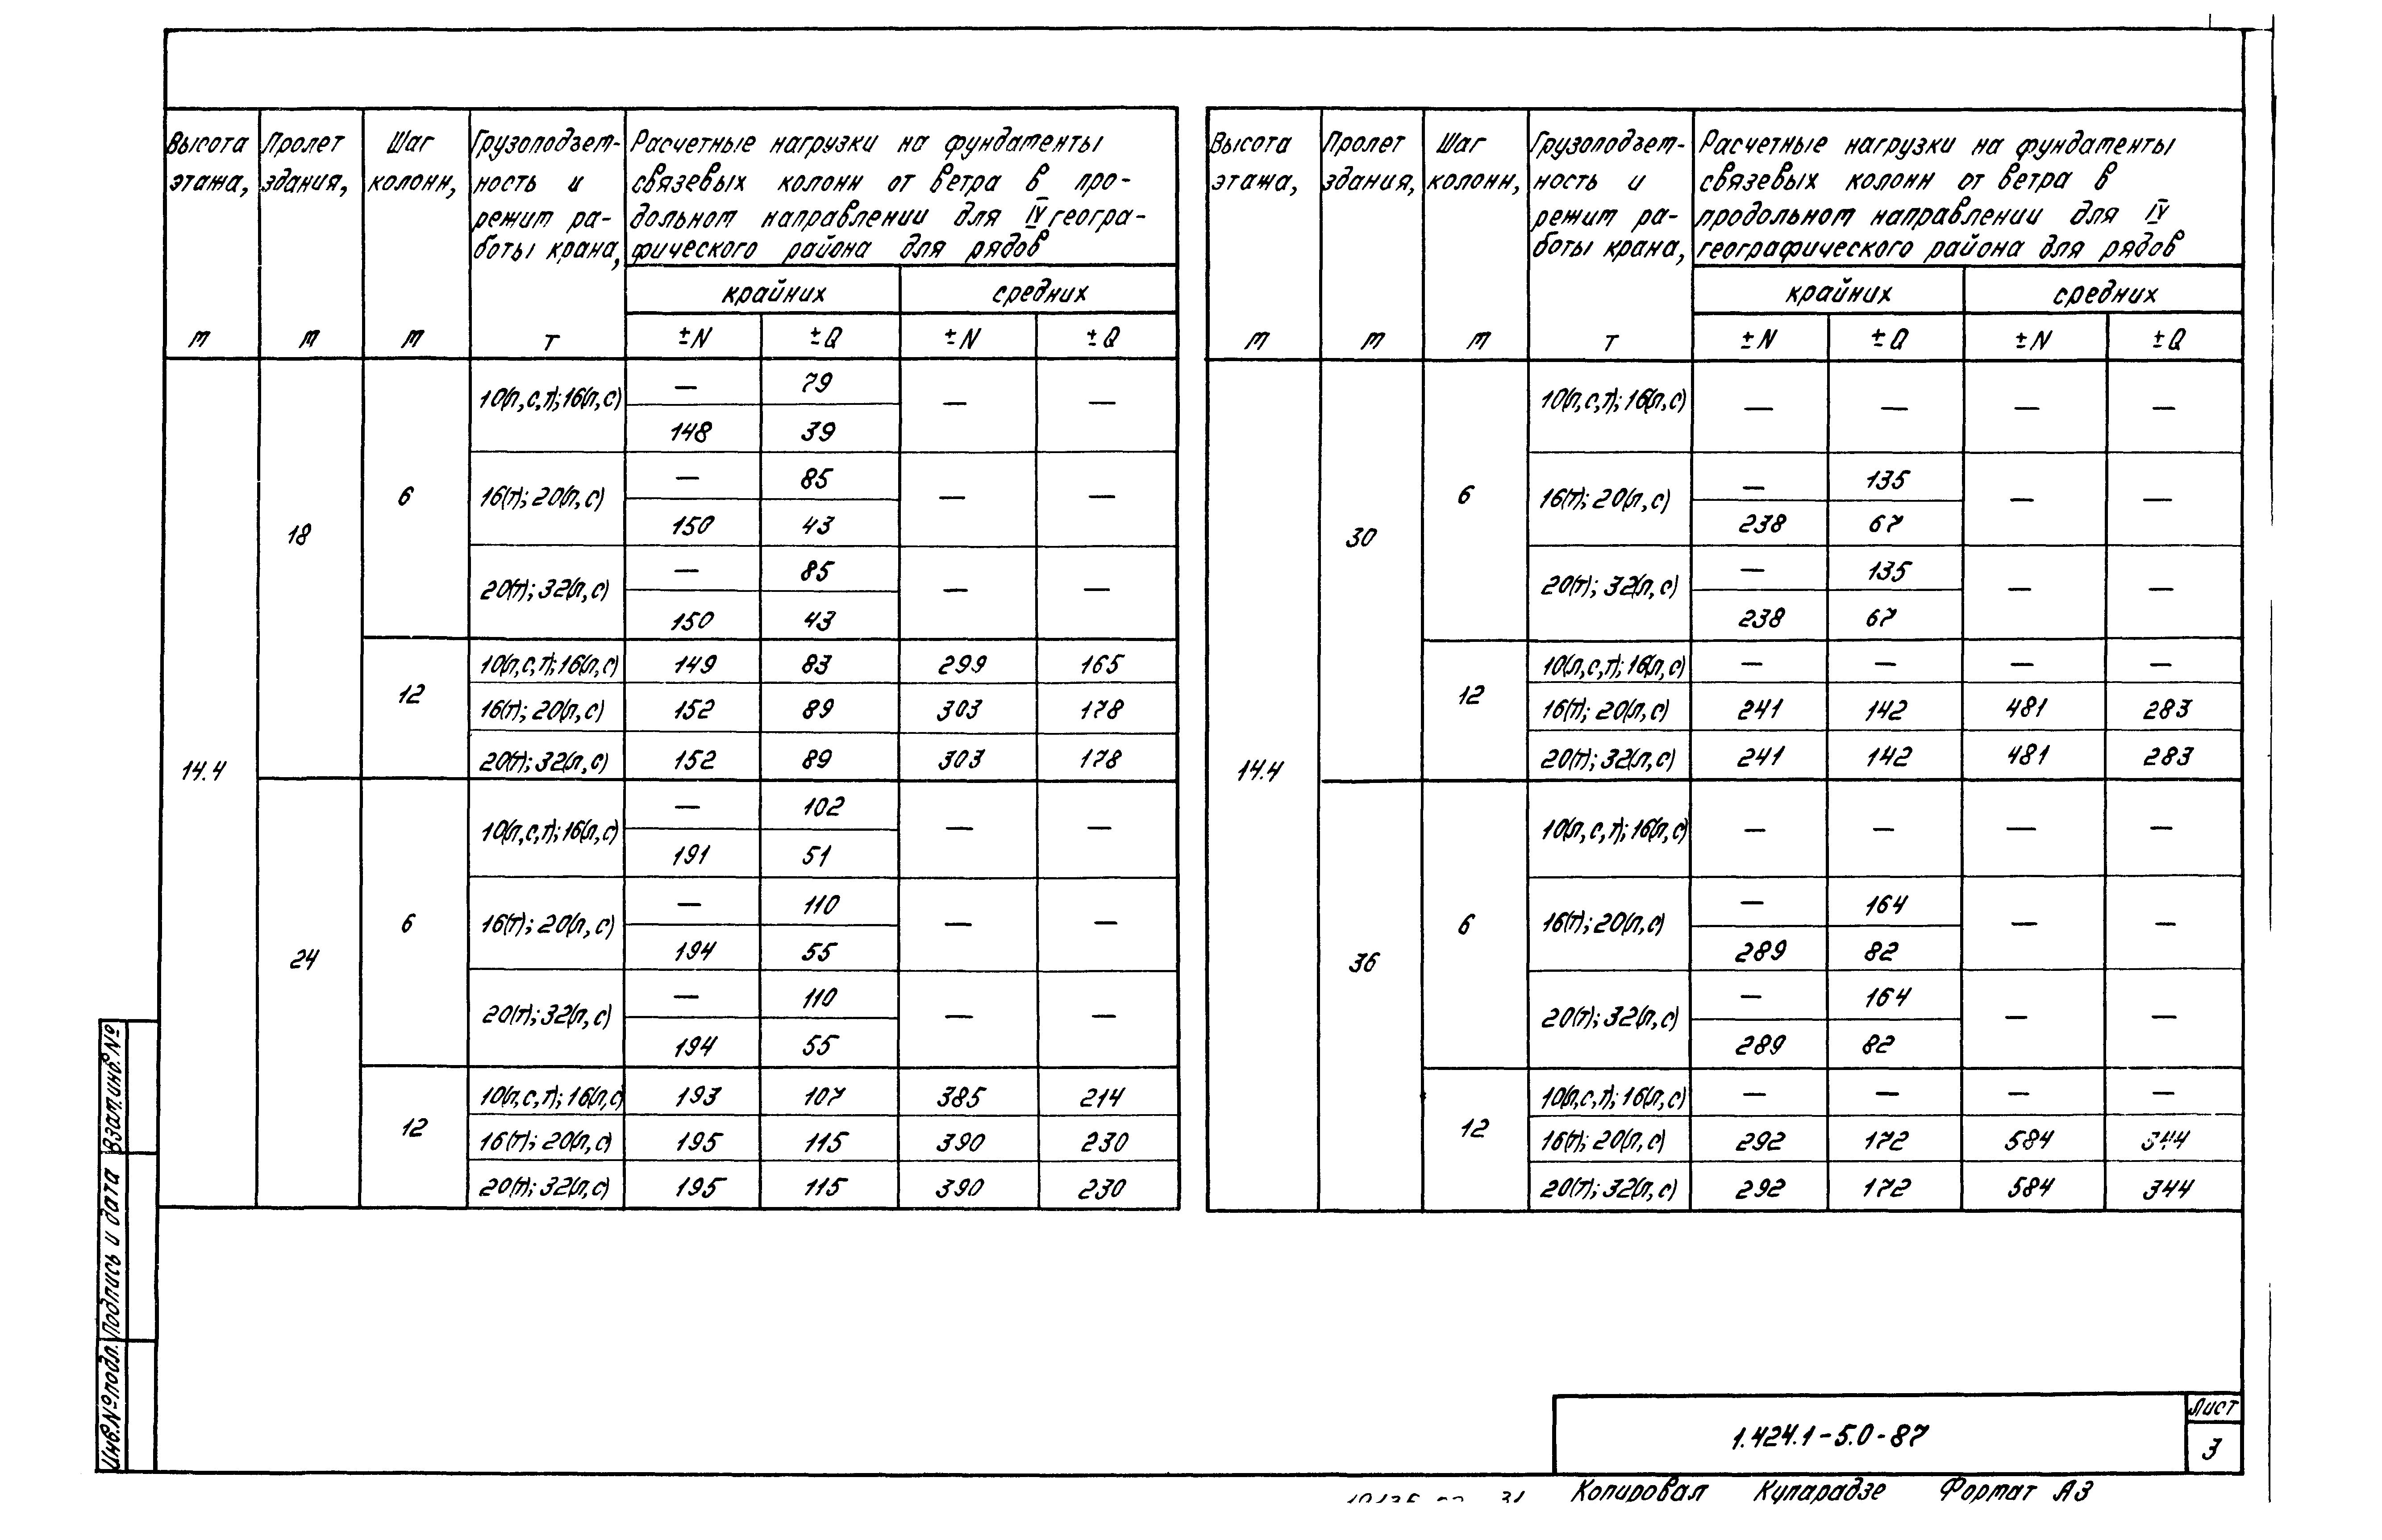 Высота этажа, м | Пролет здания, м | Шаг колонн, м | Грузоподъем-ность и режим ра-боты крана, т | Расчетные нагрузки на фундаменты связевых колонн от ветра в про-дольном направлении для IV геогра-фического района для рядов
крайних | средних
±N | ±Q | ±N | ±Q
14.4 | 18 | 6 | 10(л,с,т); 16(л,с) | — | 79 | — | —
148 | 39
16(т); 20(л,с) | — | 85 | — | —
150 | 43
20(т); 32(л,с) | — | 85 | — | —
150 | 43
12 | 10(л,с,т); 16(л,с) | 149 | 83 | 299 | 165
16(т); 20(л,с) | 152 | 89 | 303 | 178
20(т); 32(л,с) | 152 | 89 | 303 | 178
24 | 6 | 10(л,с,т); 16(л,с) | — | 102 | — | —
191 | 51
16(т); 20(л,с) | — | 110 | — | —
194 | 55
20(т); 32(л,с) | — | 110 | — | —
194 | 55
12 | 10(л,с,т); 16(л,с) | 193 | 107 | 385 | 214
16(т); 20(л,с) | 195 | 115 | 390 | 230
20(т); 32(л,с) | 195 | 115 | 390 | 230
Высота этажа, м | Пролет здания, м | Шаг колонн, м | Грузоподъем-ность и режим ра-боты крана, т | Расчетные нагрузки на фундаменты связевых колонн от ветра в продольном направлении для IV географического района для рядов
крайних | средних
±N | ±Q | ±N | ±Q
14.4 | 30 | 6 | 10(л,с,т); 16(л,с) | — | — | — | —
16(т); 20(л,с) | — | 135 | — | —
238 | 67
20(т); 32(л,с) | — | 135 | — | —
238 | 67
12 | 10(л,с,т); 16(л,с) | — | — | — | —
16(т); 20(л,с) | 241 | 142 | 481 | 283
20(т); 32(л,с) | 241 | 142 | 481 | 283
36 | 6 | 10(л,с,т); 16(л,с) | — | — | — | —
16(т); 20(л,с) | — | 164 | — | —
289 | 82
20(т); 32(л,с) | — | 164 | — | —
289 | 82
12 | 10(л,с,т); 16(л,с) | — | — | — | —
16(т); 20(л,с) | 292 | 172 | 584 | 344
20(т); 32(л,с) | 292 | 172 | 584 | 344
Инв.№подл. Подпись и дата Взам.инв.№
1.424.1-5.0-87
Лист
3
31 Копировал Купарадзе Формат А3